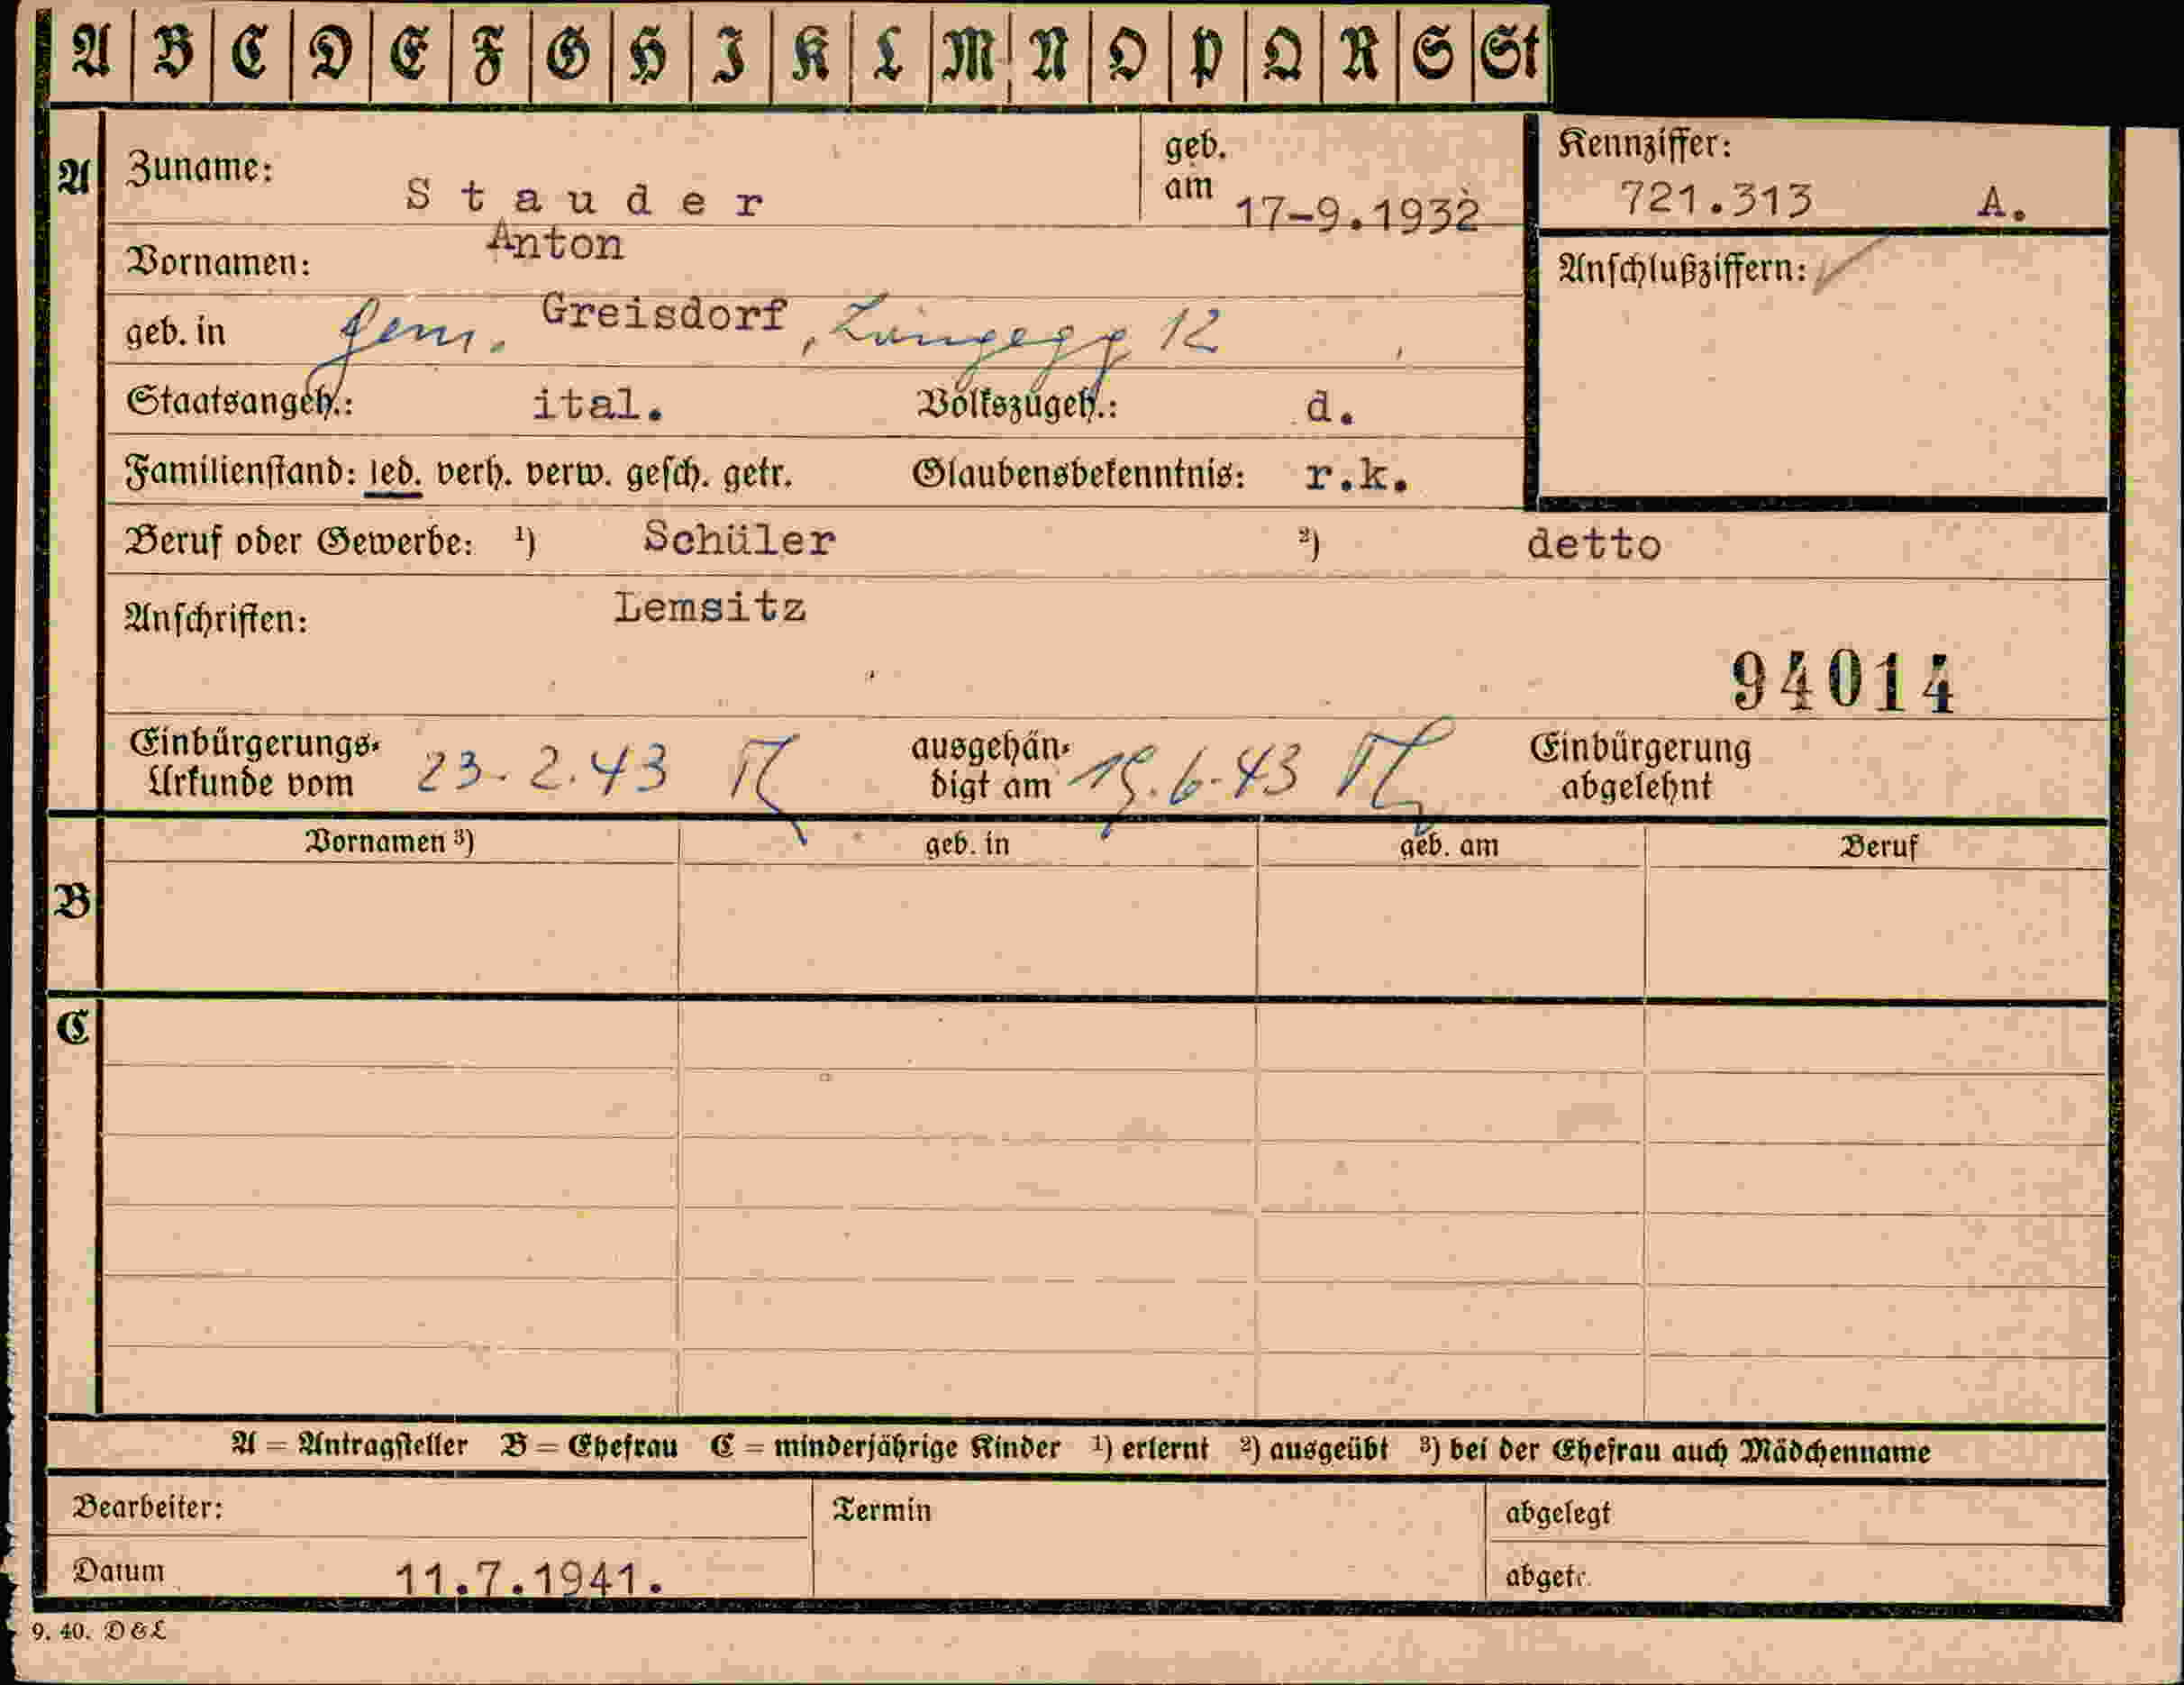 A B C D E F G H I K L M N O P Q R S St
A Zuname: Stauder geb. am 17-9.1932 Kennziffer: 721.313 A.
Vornamen: Anton Anschlußziffern:
geb. in Gem. Greisdorf, Langegg 12
Staatsangeh.: ital. Volkszugeh.: d.
Familienstand: led. verh. verw. gesch. getr. Glaubensbekenntnis: r.k.
Beruf oder Gewerbe: ¹) Schüler ²) detto
Anschriften: Lemsitz
94014
Einbürgerungs-Urkunde vom 23.2.43 ausgehändigt am 19.6.43 Einbürgerung abgelehnt
Vornamen ³) geb. in geb. am Beruf
B
C
A = Antragsteller B = Ehefrau C = minderjährige Kinder ¹) erlernt ²) ausgeübt ³) bei der Ehefrau auch Mädchenname
Bearbeiter: Termin abgelegt
Datum 11.7.1941. abgetr.
9. 40. D&L